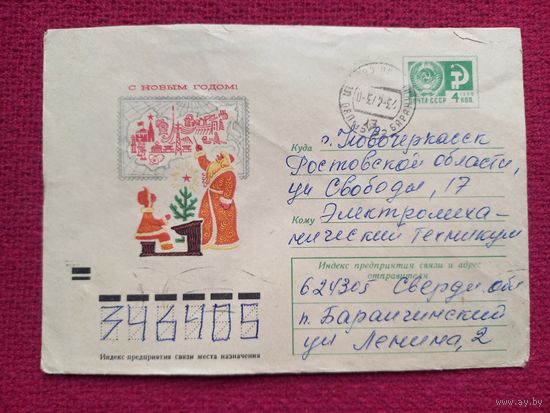 С НОВЫМ ГОДОМ!
ПОЧТА СССР 4 КОП.
Куда г. Новочеркасск
Ростовской области,
ул Свободы, 17
Кому Электромеха-
нический Техникум
Индекс предприятия связи и адрес
отправителя
624305 Свердл обл
п. Баранчинский
ул Ленина, 2
346405
Индекс предприятия связи места назначения
www.ay.by